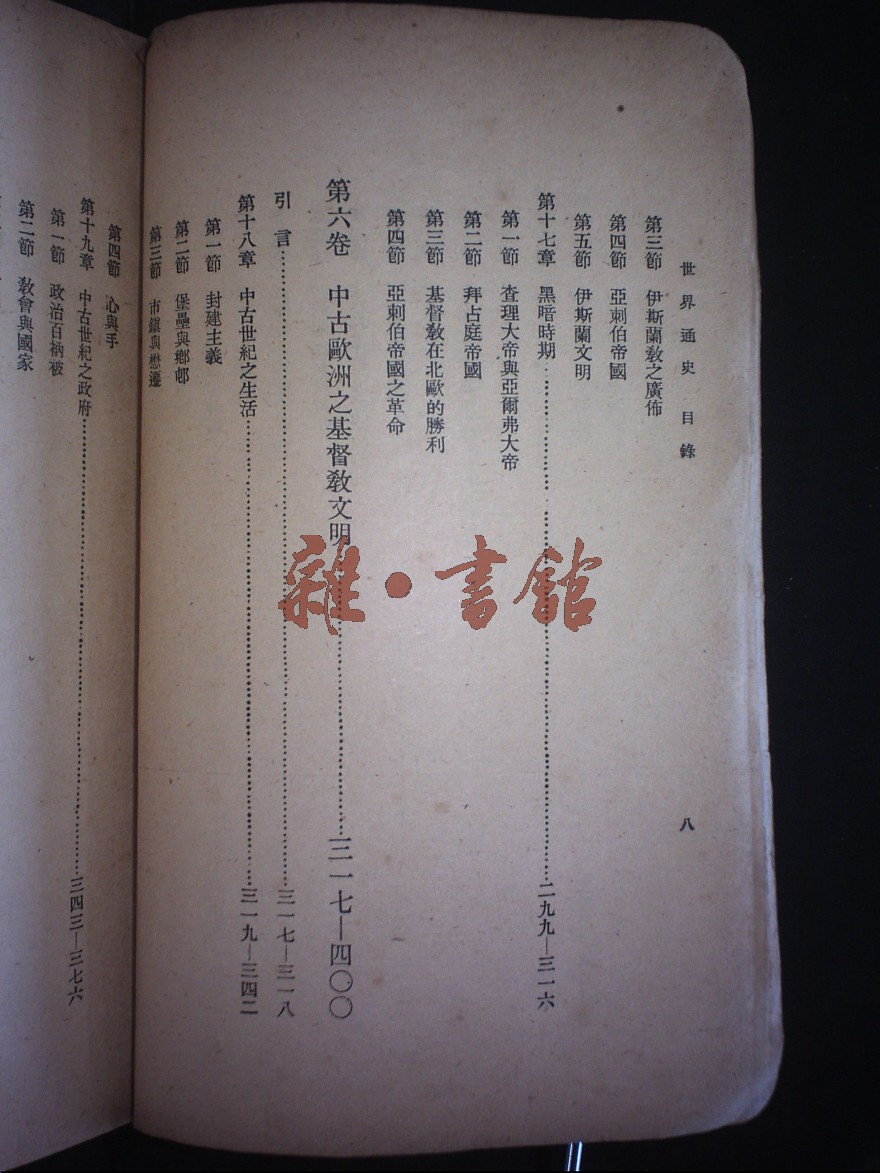 世界通史 目錄
八
第三節 伊斯蘭教之廣佈
第四節 亞剌伯帝國
第五節 伊斯蘭文明
第十七章 黑暗時期……二九九—三一六
第一節 查理大帝與亞爾弗大帝
第二節 拜占庭帝國
第三節 基督教在北歐的勝利
第四節 亞剌伯帝國之革命
第六卷 中古歐洲之基督教文明……三一七—四〇〇
引言……三一七—三一八
第十八章 中古世紀之生活……三一九—三四二
第一節 封建主義
第二節 堡壘與鄉邨
第三節 市鎮與懋遷
第四節 心與手
第十九章 中古世紀之政府……三四三—三七六
第一節 政治百衲被
第二節 教會與國家
雜·書館